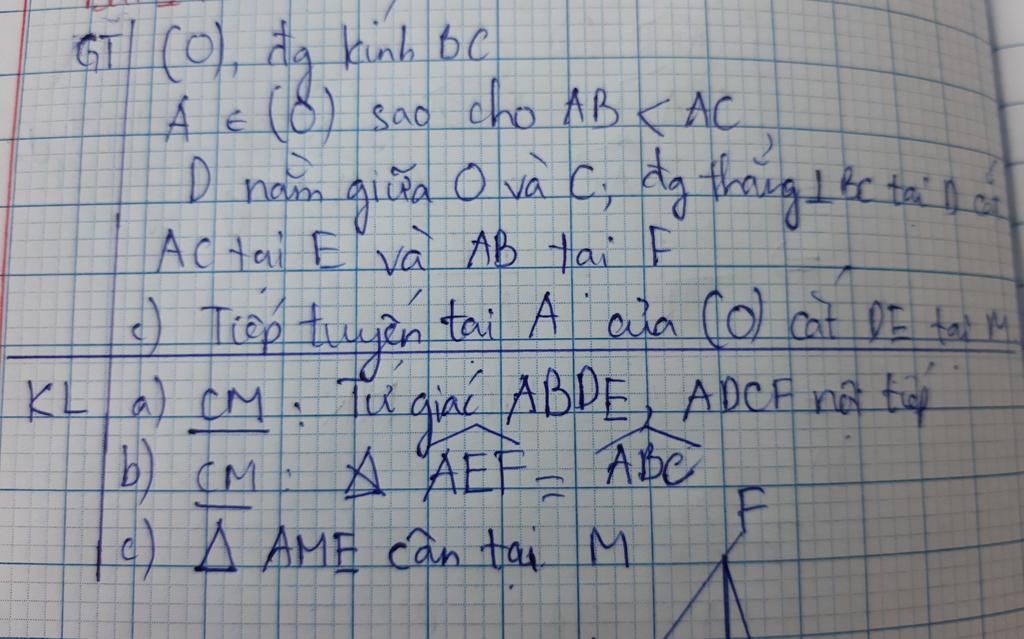 GT (O), đg kính BC
A ∈ (O) sao cho AB < AC
D nằm giữa O và C; đg thẳng ⊥ BC tại D cắt
AC tại E và AB tại F
c) Tiếp tuyến tại A của (O) cắt DE tại M
KL a) CM: Tứ giác ABDE, ADCF nội tiếp
b) CM: Δ AEF = ABC
c) Δ AME cân tại M
F